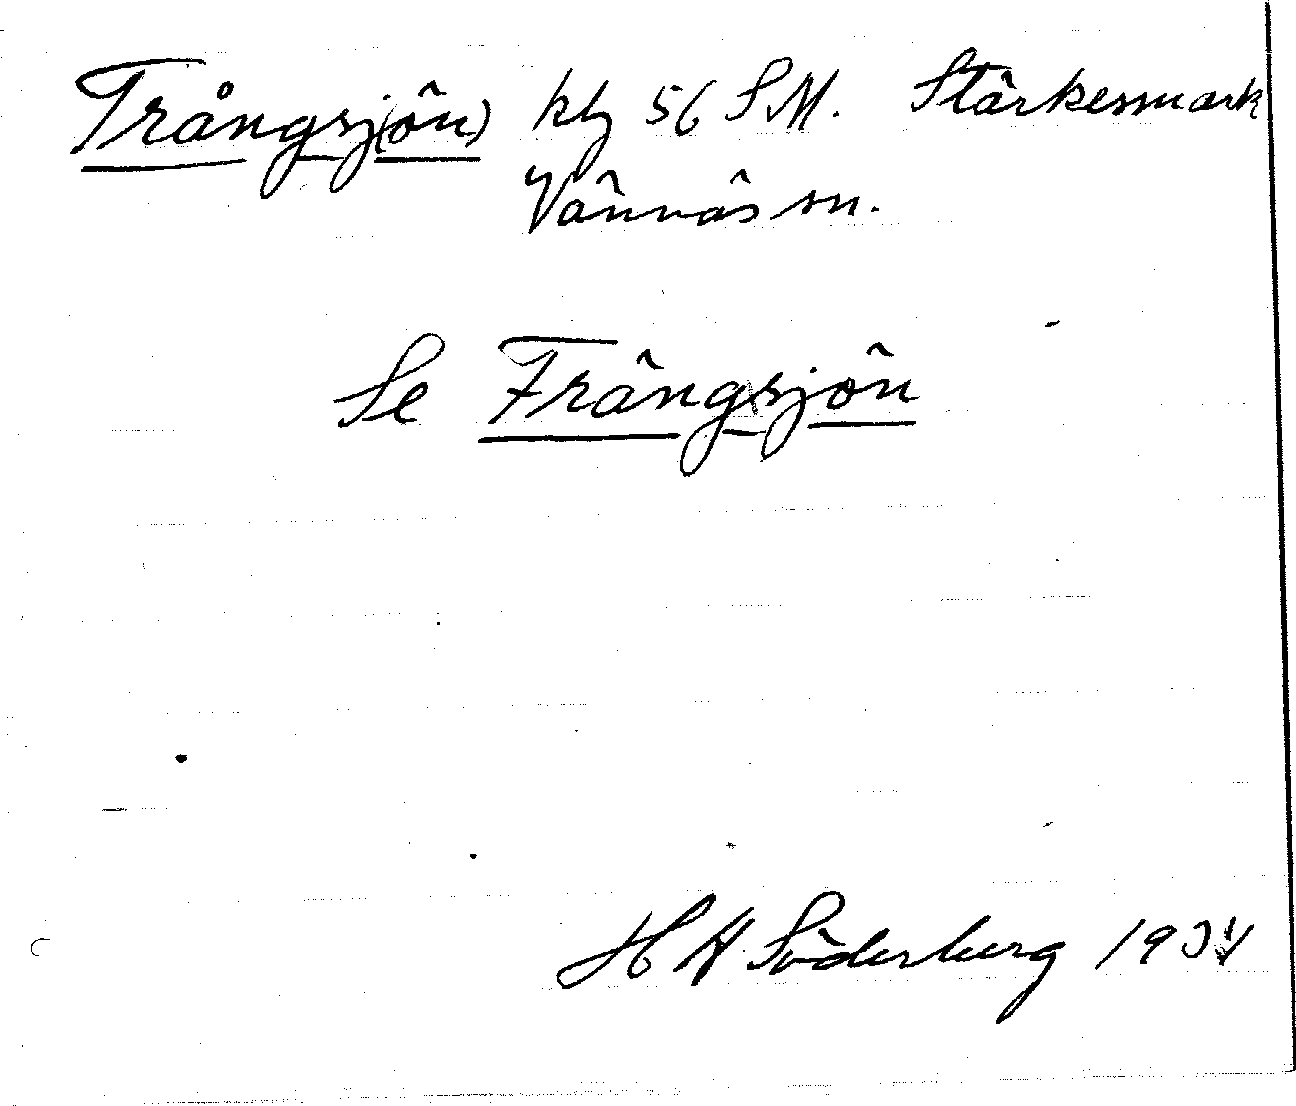 Trångsj(ön) kbg 56 S.M. Stärkesmark
Vännäs sn.
Se Frängsjön
H A Söderberg 1934